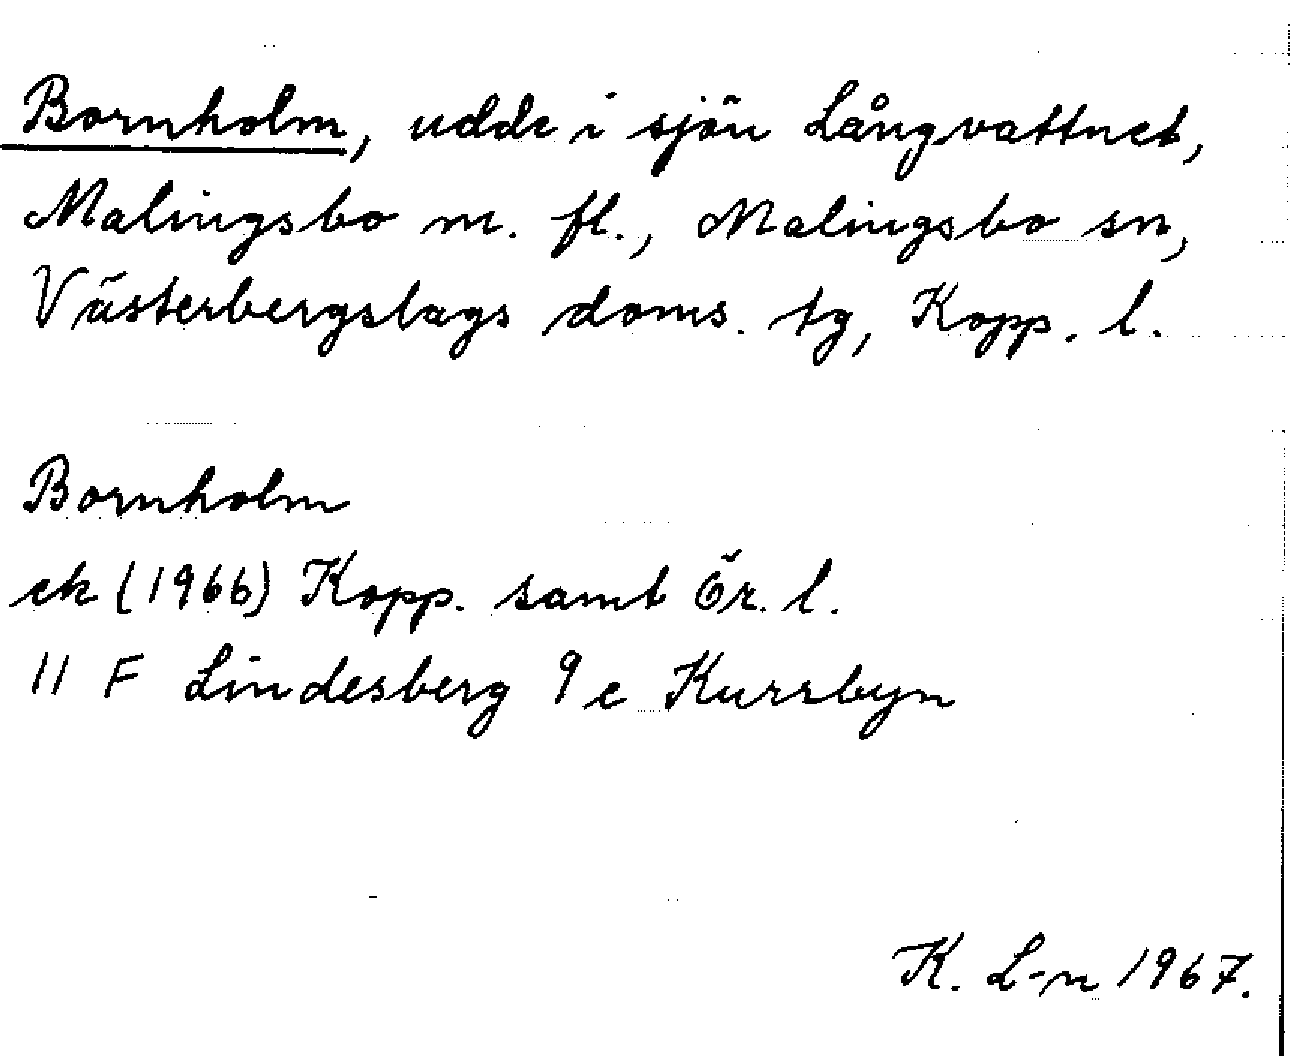 Bornholm, udde i sjön Långvattnet,
Malingsbo m. fl., Malingsbo sn,
Västerbergslags doms. tg, Kopp. l.
Bornholm
ek (1966) Kopp. samt Ör. l.
11 F Lindesberg 9 c Kursbyn
K. L-n 1967.